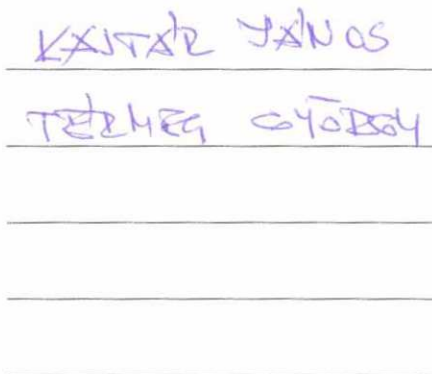 KAJTÁR JÁNOS
TERMEG GYÖRGY